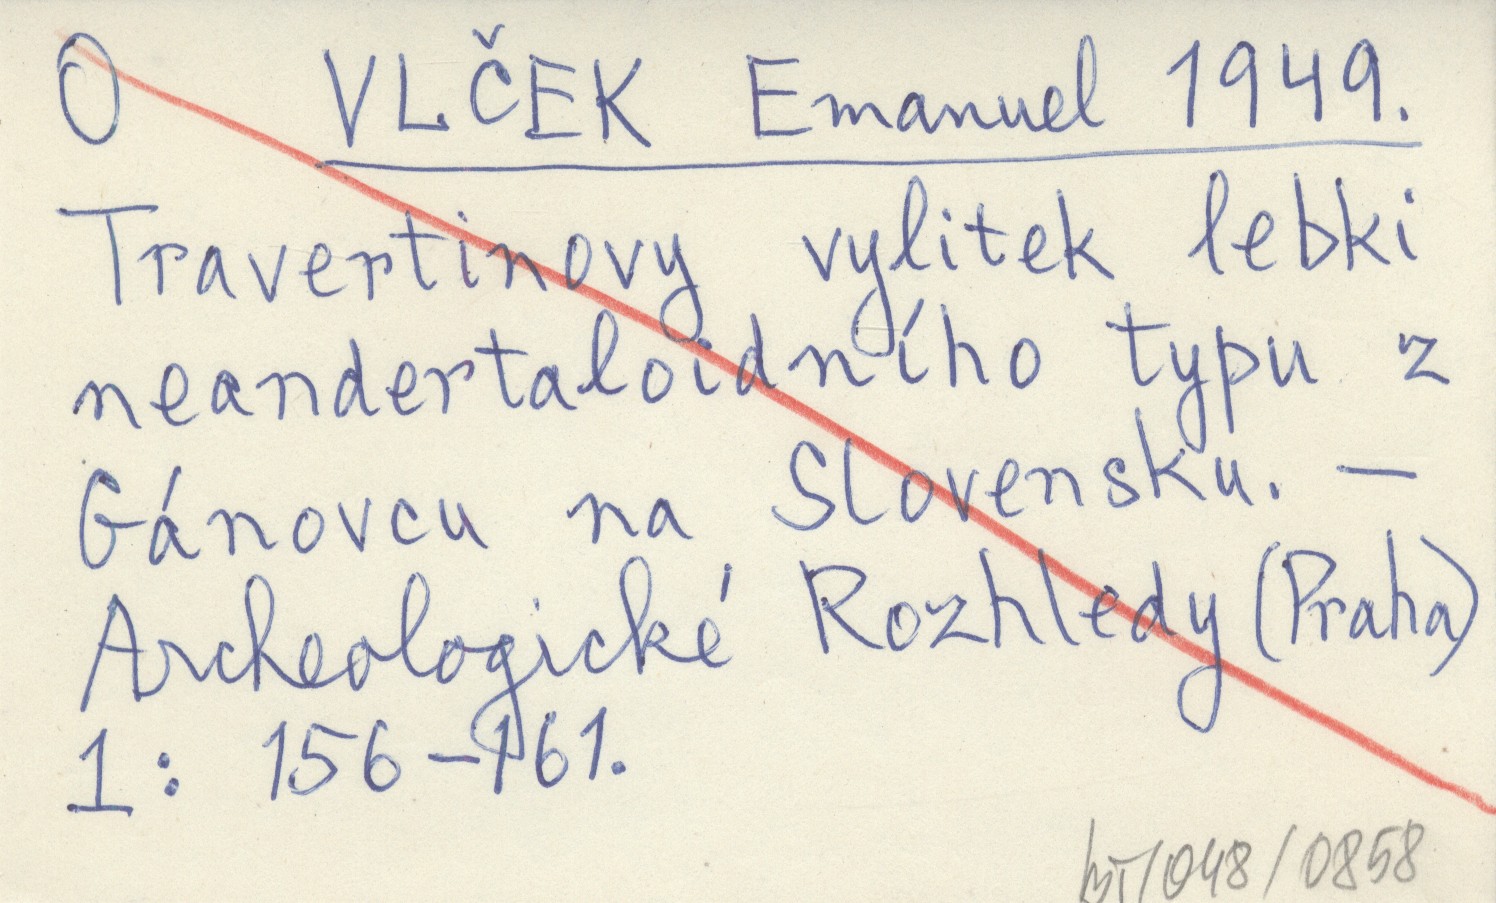 O VLČEK Emanuel 1949.
Travertinovy vylitek lebki
neandertaloidního typu z
Gánovcu na Slovensku. —
Archeologické Rozhledy (Praha)
1: 156-161.
/048/0858